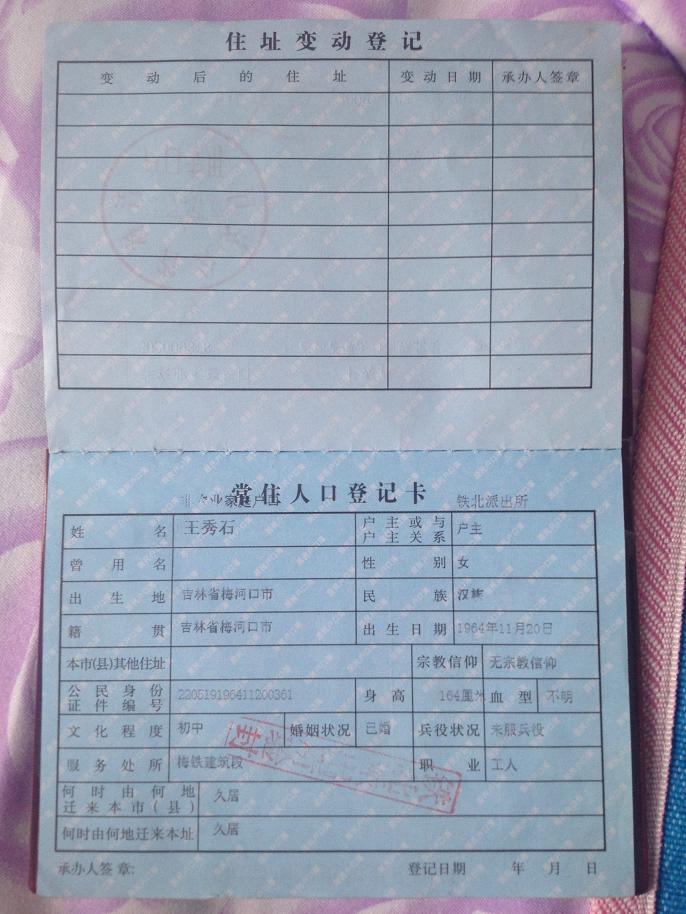 住址变动登记
变动后的住址 变动日期 承办人签章
常住人口登记卡
家庭户口 铁北派出所
姓名 王秀石 户主或与户主关系 户主
曾用名 性别 女
出生地 吉林省梅河口市 民族 汉族
籍贯 吉林省梅河口市 出生日期 1964年11月20日
本市(县)其他住址 宗教信仰 无宗教信仰
公民身份证件编号 220519196411200361 身高 164厘米 血型 不明
文化程度 初中 婚姻状况 已婚 兵役状况 未服兵役
服务处所 梅铁建筑段 职业 工人
何时由何地迁来本市(县) 久居
何时由何地迁来本址 久居
承办人签章: 登记日期 年 月 日